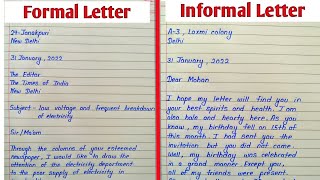 Formal Letter
24-Janakpuri
New Delhi
31 January, 2022
The Editor
The Times of India
New Delhi
Subject - low voltage and frequent breakdown
of electricity
Sir/Ma'am
Through the columns of your esteemed
newspaper, I would like to draw the
attention of the electricity department
to the poor supply of electricity in
Informal Letter
A-3, Laxmi colony
Delhi
31 January, 2022
Dear Mohan
I hope my letter will find you in
your best spirits and health. I am
also hale and hearty here. As you
know, my birthday fell on 15th of
this month. I had sent you the
invitation but you did not come.
Well, my birthday was celebrated
in a grand manner. Except you,
all of my friends were present.